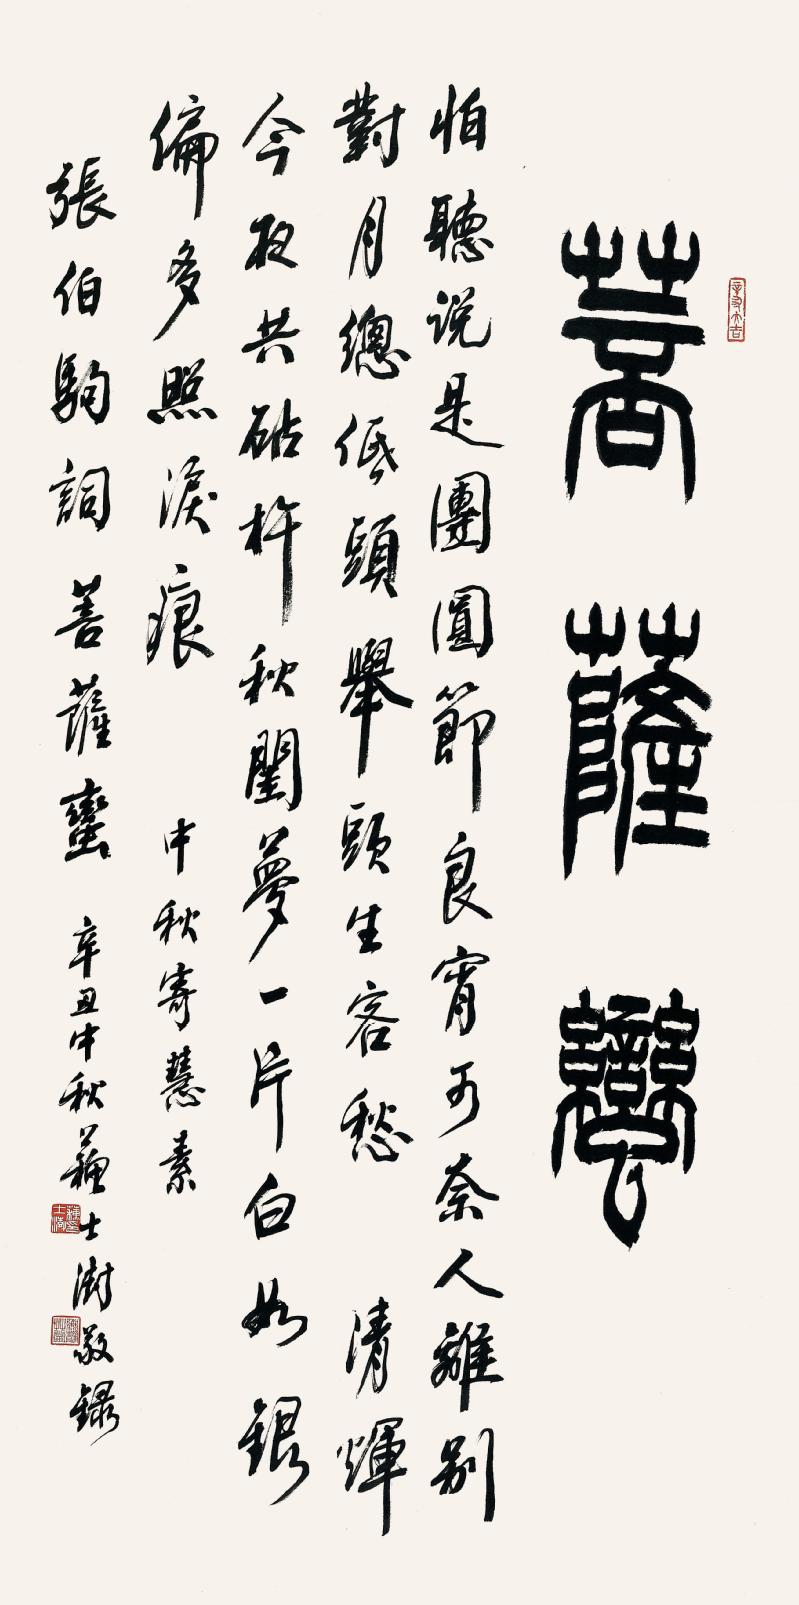 菩薩蠻
怕聽說是團圓節良宵可奈人離別
對月總低頭舉頭生客愁 清輝
今夜共砧杵秋閨夢一片白如銀
偏多照淚痕 中秋寄慧素
張伯駒詞菩薩蠻 辛丑中秋蘇士澍敬錄